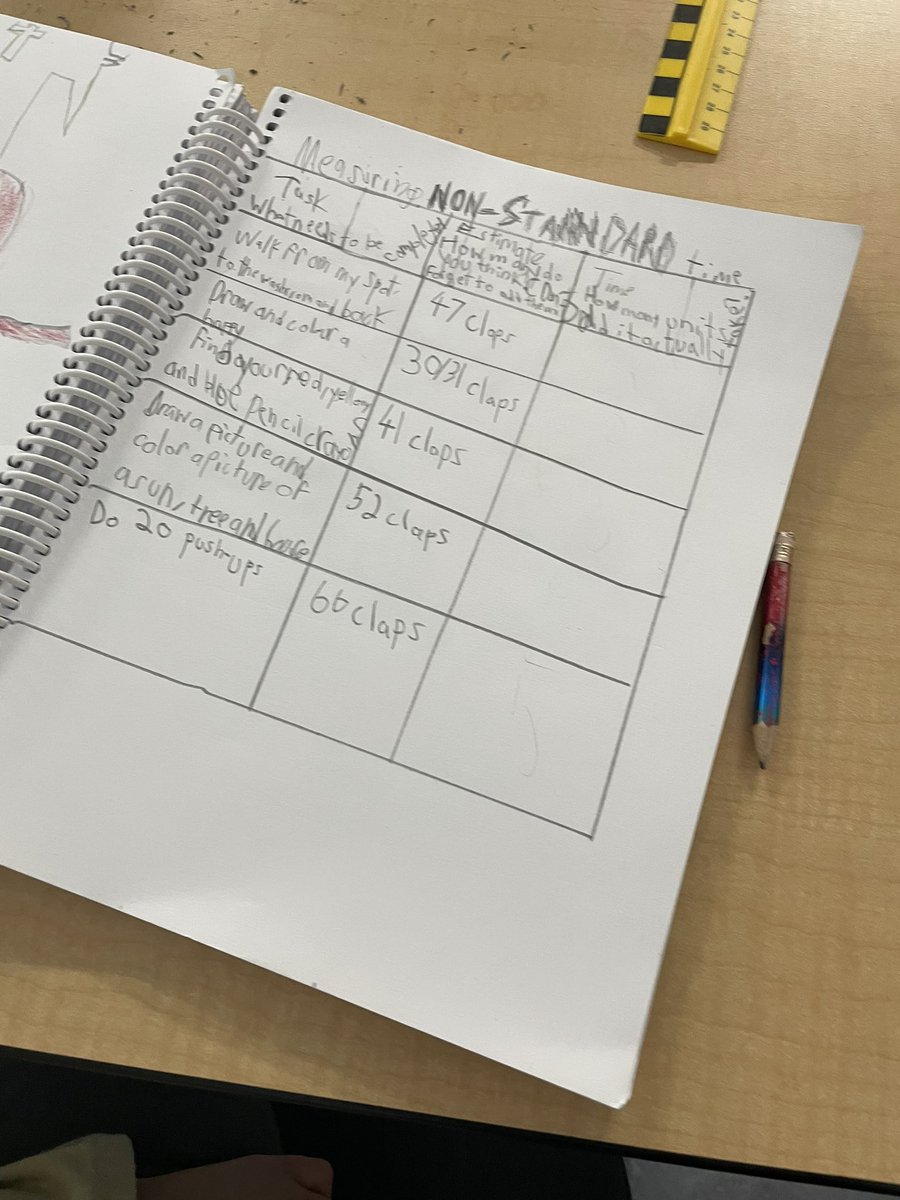 Measuring NON-STANDARD time
Task
What needs to be complete
Estimate
How many do
you think? Don't
forget to add them
Time
How many units
Did it actually
take?
Walk from my spot
to the washroom and back
47 claps
Draw and color a
happy
30/31 claps
Find your red, yellow
and blue pencil crayons
41 claps
Draw a picture and
color a picture of
a sun, tree and house
52 claps
Do 20 push-ups
66 claps